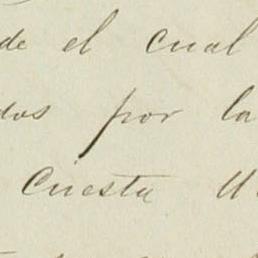 de el cual
dos por la
Cuesta